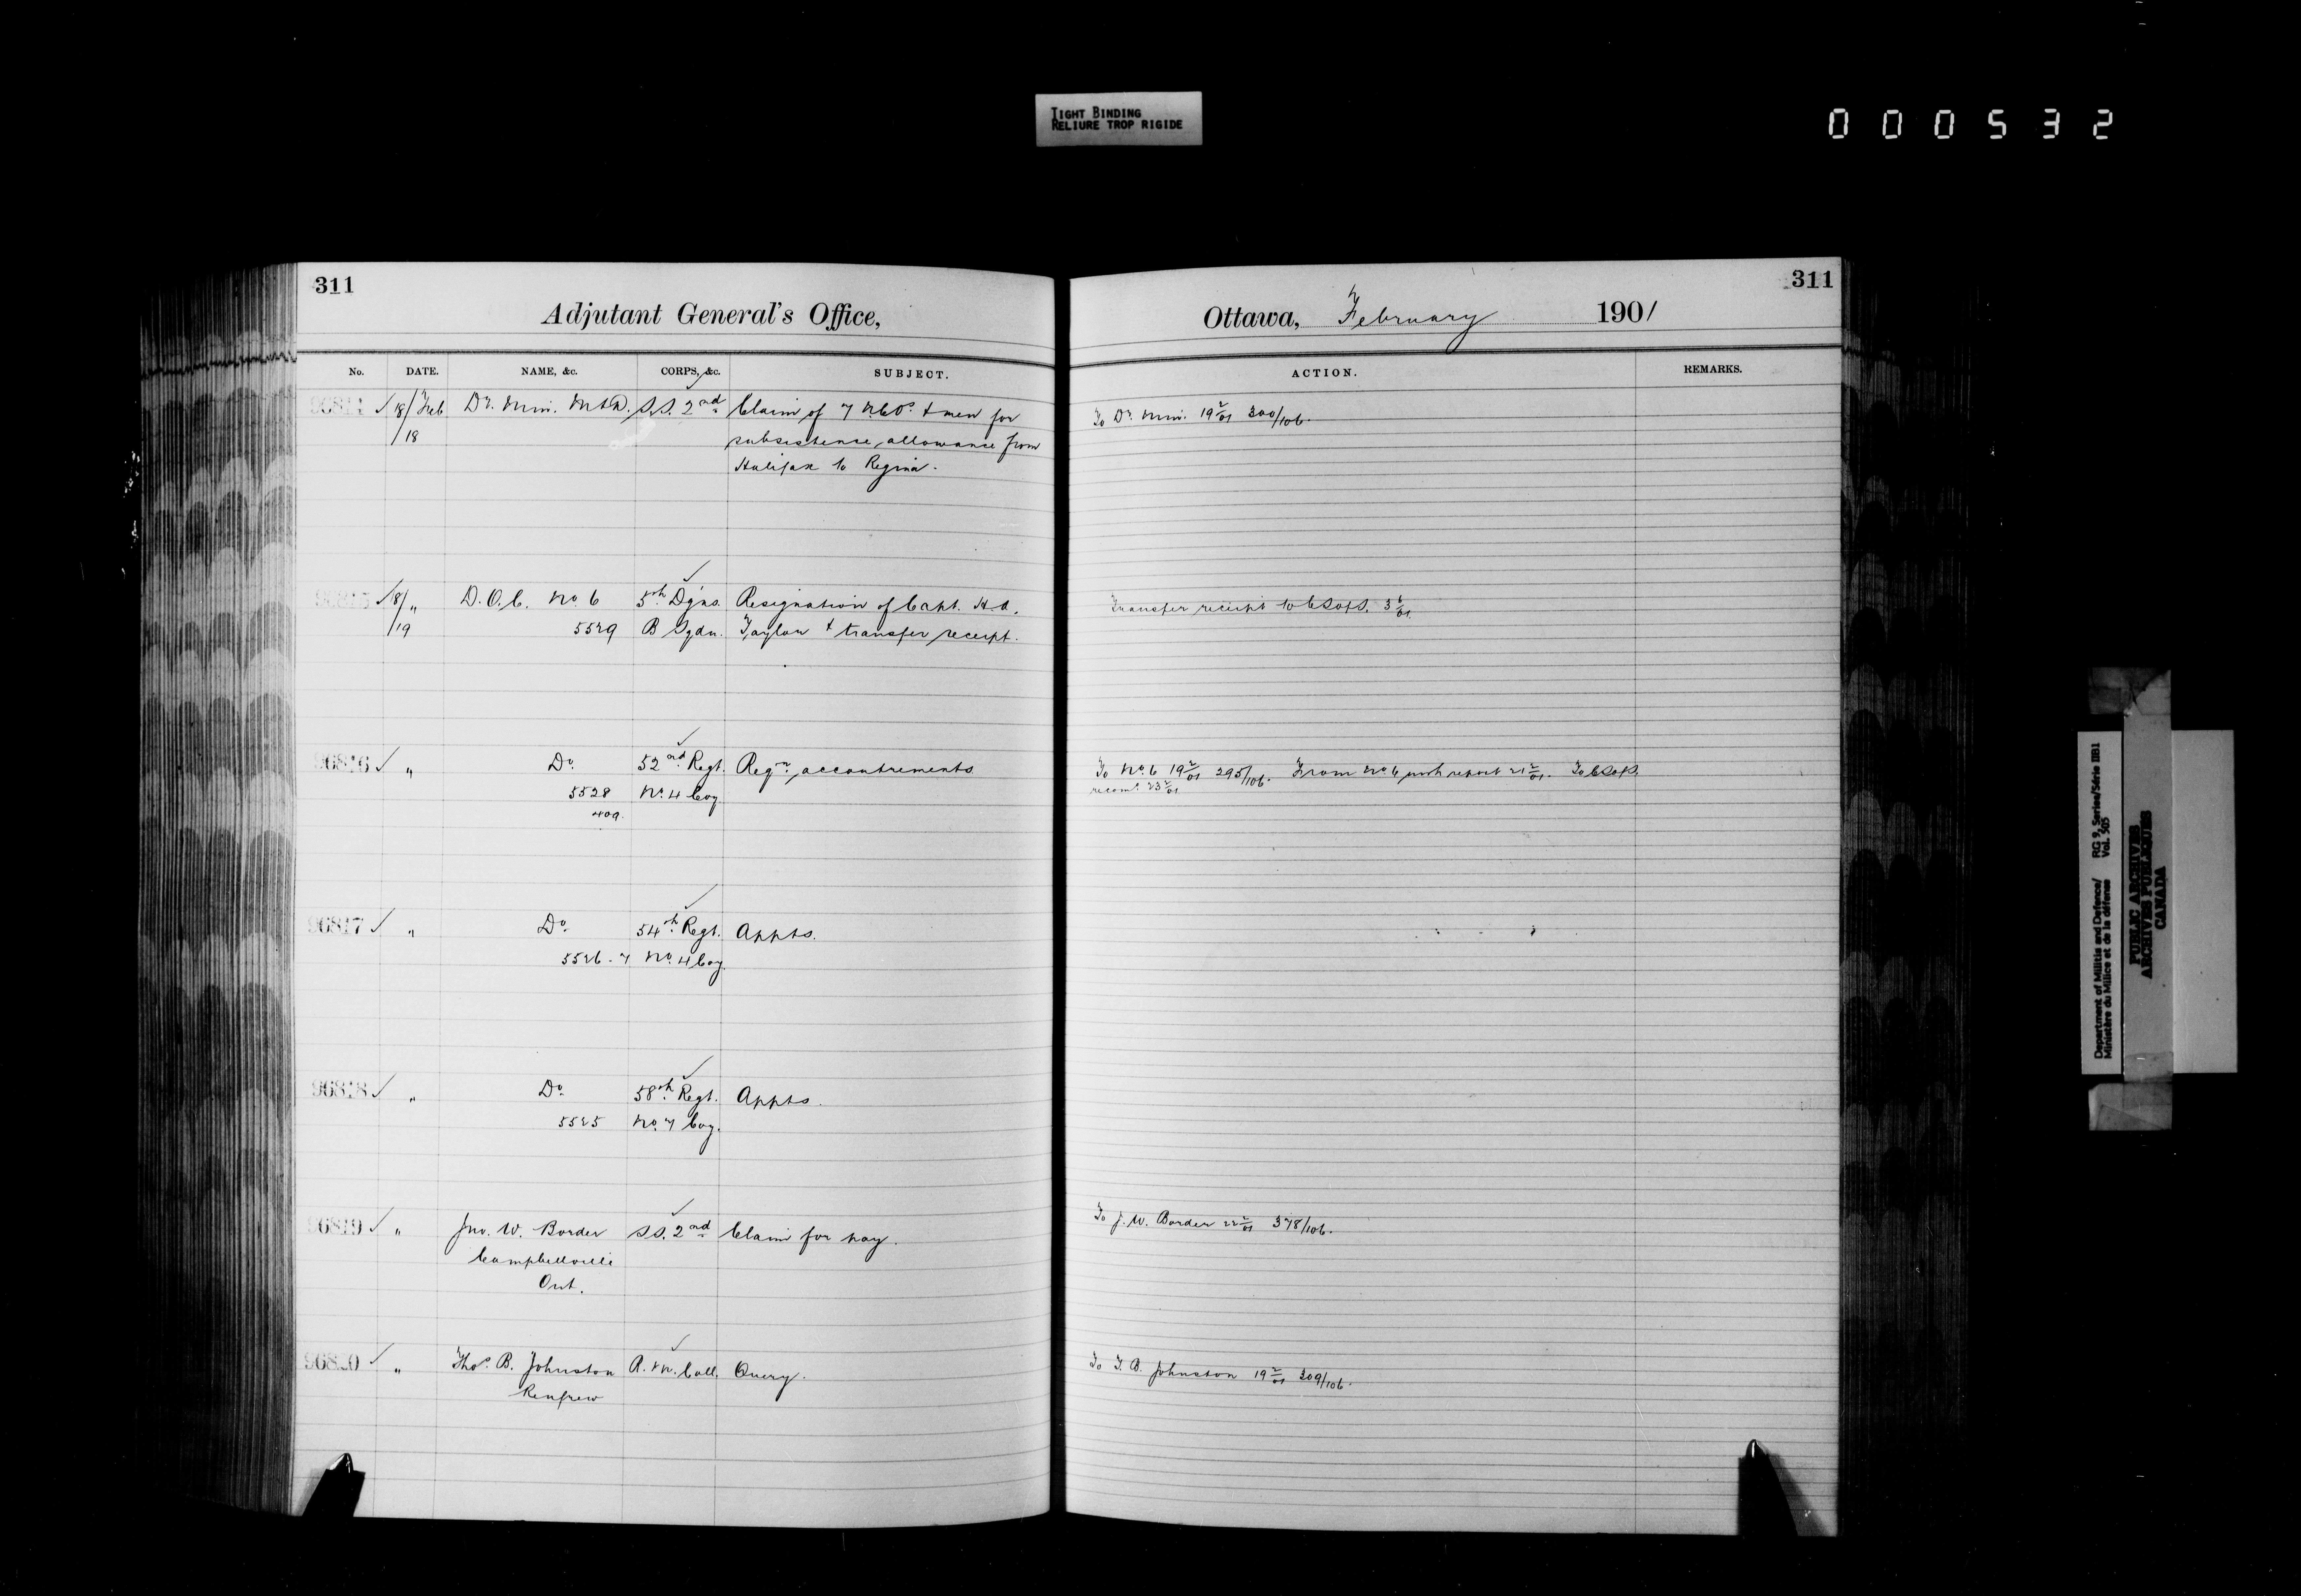 TIGHT BINDING
RELIURE TROP RIGIDE
000532
311
Adjutant General's Office,
No. DATE. NAME, &c. CORPS, &c. SUBJECT.
96814 ✓ 18/Feb Dr. Min. M&D. S.S. 2nd Claim of 7 N.C.O's. & men for
/18 subsistence allowance from
Halifax to Regina.
96815 ✓ 18/" D.O.C. No. 6 5th Dgns. Resignation of Capt. H.A.
/19 5529 B Sqdn. Taylor & transfer receipt.
96816 ✓ " Do. 52nd Regt. Reqn. accoutrements
5528 No. 4 Coy.
409.
96817 ✓ " Do. 54th Regt. Appts.
5526-7 No. 4 Coy.
96818 ✓ " Do. 58th Regt. Appts.
5525 No. 7 Coy.
96819 ✓ " Jno. W. Border S.S. 2nd Claim for pay.
Campbellville
Ont.
96820 ✓ " Thos. B. Johnston R.M. Coll. Query.
Renfrew
311
Ottawa, February 1901
ACTION. REMARKS.
To Dr. Min. 19 2/01 200/106.
Transfer receipt to CSofS. 3 6/01.
To No. 6 19 2/01 295/106. From No. 6 with report 21 2/01. To CSofS.
recomd. 23 2/01
To J. W. Border 22 2/01 378/106.
To T. B. Johnston 19 2/01 209/106.
Department of Militia and Defence/ RG 9, Series/Série IIB1
Ministère du Milice et de la défense Vol. 505
PUBLIC ARCHIVES
ARCHIVES PUBLIQUES
CANADA